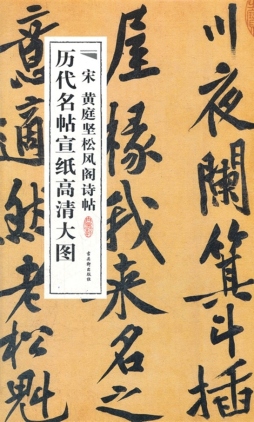 川夜闌箕斗插
屋椽我来名之
意適然老松魁
宋 黄庭坚松风阁诗帖
历代名帖宣纸高清大图